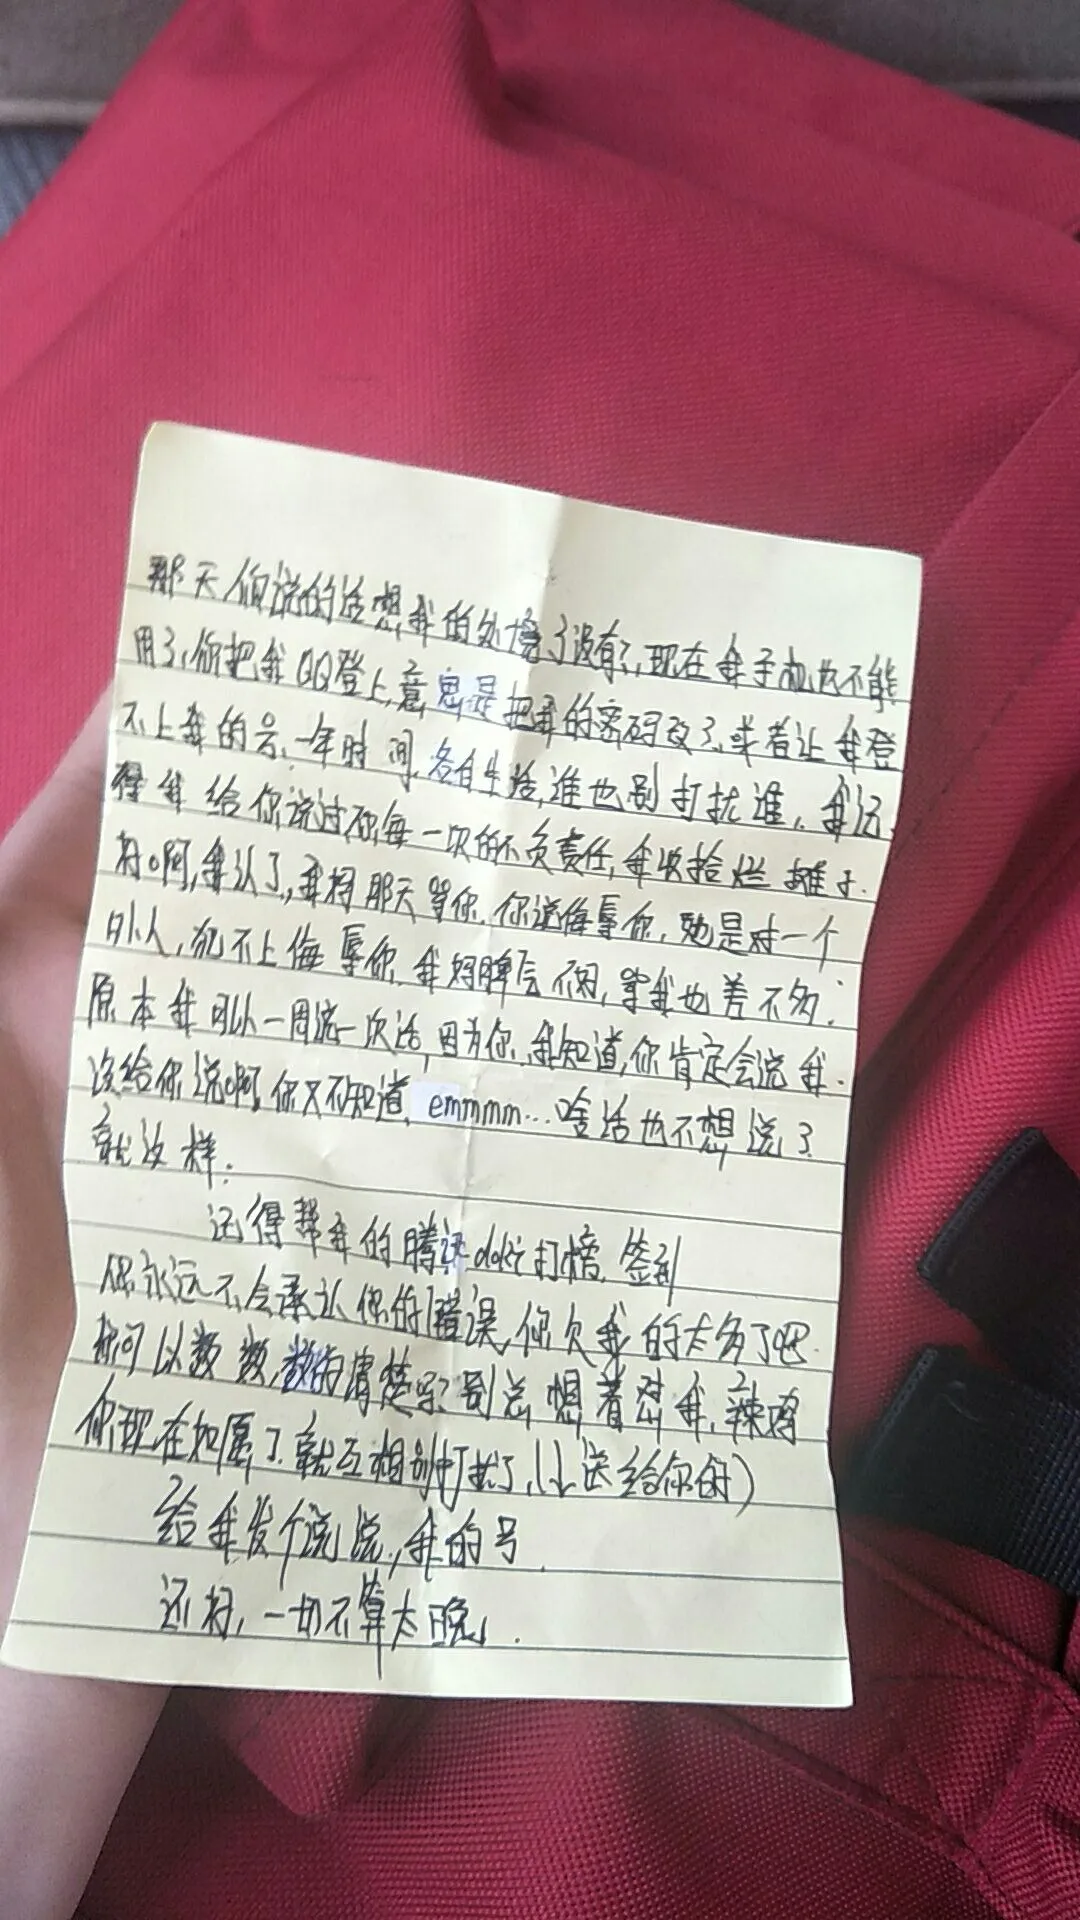 那天你说的话想我的处境了没有?,现在我手机也不能
用了,你把我QQ登上,意思是把我的密码改了,或者让我登
不上我的号,一年时间,各自生活,谁也别打扰谁,我记
得我给你说过你每一次的不负责任,我收拾烂摊子.
好啊,我认了,我妈那天等你,你说侮辱你,她是对一个
外人,犯不上侮辱你,我妈脾气不好,掌我也差不多.
原本我可以一周说一次话,因为你,我知道,你肯定会说我.
没给你说啊,你又不知道,emmmm...啥话也不想说了
就这样.
还得帮我的腾讯doki打榜,签到
你永远不会承认你的错误,你欠我的太多了吧
你可以数数,数的清楚吗?别总想着怼我,辣鸡
你现在如愿了,就互相别打扰了,(送给你的)
给我发个说说,我的号
还好,一切不算太晚.